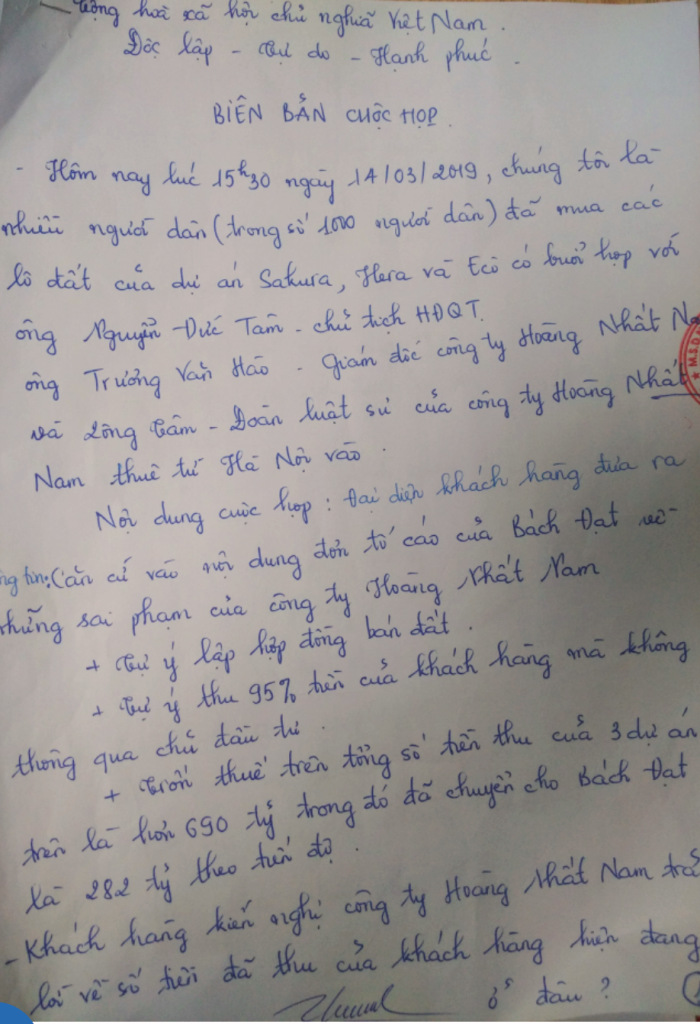 Cộng hoà xã hội chủ nghĩa Việt Nam.
Độc lập - Tự do - Hạnh phúc.
BIÊN BẢN CUỘC HỌP.
- Hôm nay lúc 15h30 ngày 14/03/2019, chúng tôi là
nhiều người dân (trong số 1000 người dân) đã mua các
lô đất của dự án Sakura, Hera và Eco có buổi họp với
ông Nguyễn Đức Tâm - chủ tịch HĐQT.
ông Trương Văn Hào - Giám đốc công ty Hoàng Nhất Na
và Lông Câm - Đoàn luật sư của công ty Hoàng Nhất
Nam thuê từ Hà Nội vào.
Nội dung cuộc họp: Đại diện khách hàng đưa ra
ng tin: Căn cứ vào nội dung đơn tố cáo của Bách Đạt về
những sai phạm của công ty Hoàng Nhất Nam
+ Tự ý lập hợp đồng bán đất.
+ Tự ý thu 95% tiền của khách hàng mà không
thông qua chủ đầu tư.
+ Trốn thuế trên tổng số tiền thu của 3 dự án
trên là hơn 690 tỷ trong đó đã chuyển cho Bách Đạt
là 282 tỷ theo tiến độ.
- Khách hàng kiến nghị công ty Hoàng Nhất Nam trả
lời về số tiền đã thu của khách hàng hiện đang
ở đâu?
M.S.D